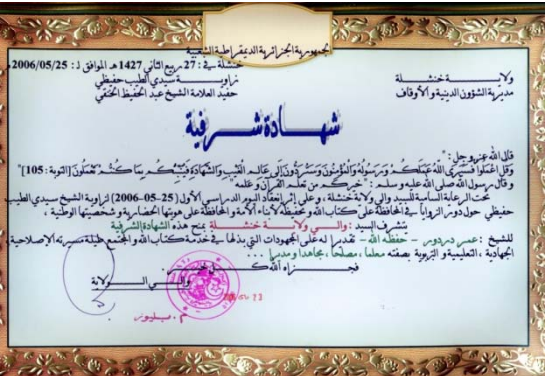 الجمهورية الجزائرية الديمقراطية الشعبية
خنشلة في : 27 ربيع الثاني 1427 هـ الموافق لـ : 2006/05/25.
ولايــــة خنشــلة
زاويــــة سيدي الطيب حفيظي
مديرية الشؤون الدينية والأوقاف
حفيد العلامة الشيخ عبد الحفيظ الخنقي
شهــادة شــرفية
قال الله عز وجل : "
وقل اعملوا فسيرى الله عملكم ورسوله والمؤمنون وستردون إلى عالم الغيب والشهادة فينبئكم بما كنتم تعملون [التوبة : 105] "
وقال رسول الله صلى الله عليه وسلم : " خيركم من تعلم القرآن وعلمه "
تحت الرعاية السامية للسيد والي ولاية خنشلة ، وعلى إثر انعقاد اليوم الدراسي الأول (25-05-2006) لزاوية الشيخ سيدي الطيب
حفيظي حول دور الزوايا في المحافظة على كتاب الله وتحفيظه لأبناء الأمة والمحافظة على هويتها الحضارية وشخصيتها الوطنية ،
يتشرف السيد : والــي ولايــة خنشلــة بمنح هذه الشهادة الشرفية
للشيخ : عمر دردور - حفظه الله - تقديرا له على المجهودات التي بذلها في خدمة كتاب الله والمجتمع طيلة مسيرته الإصلاحية ،
الجهادية ، التعليمية و التربوية بصفته معلما ، مصلحا ، مجاهدا ومديرا ...
فجــزاه الله كــل خيــر.
والــي الــولاية
م . بليوز